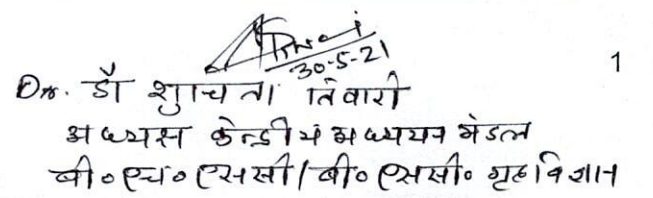 30-5-21
1
Dr. डॉ शुचिता तिवारी
अध्यक्ष केन्द्रीय अध्ययन मंडल
बी०एच०एससी/बी०एससी० गृहविज्ञान